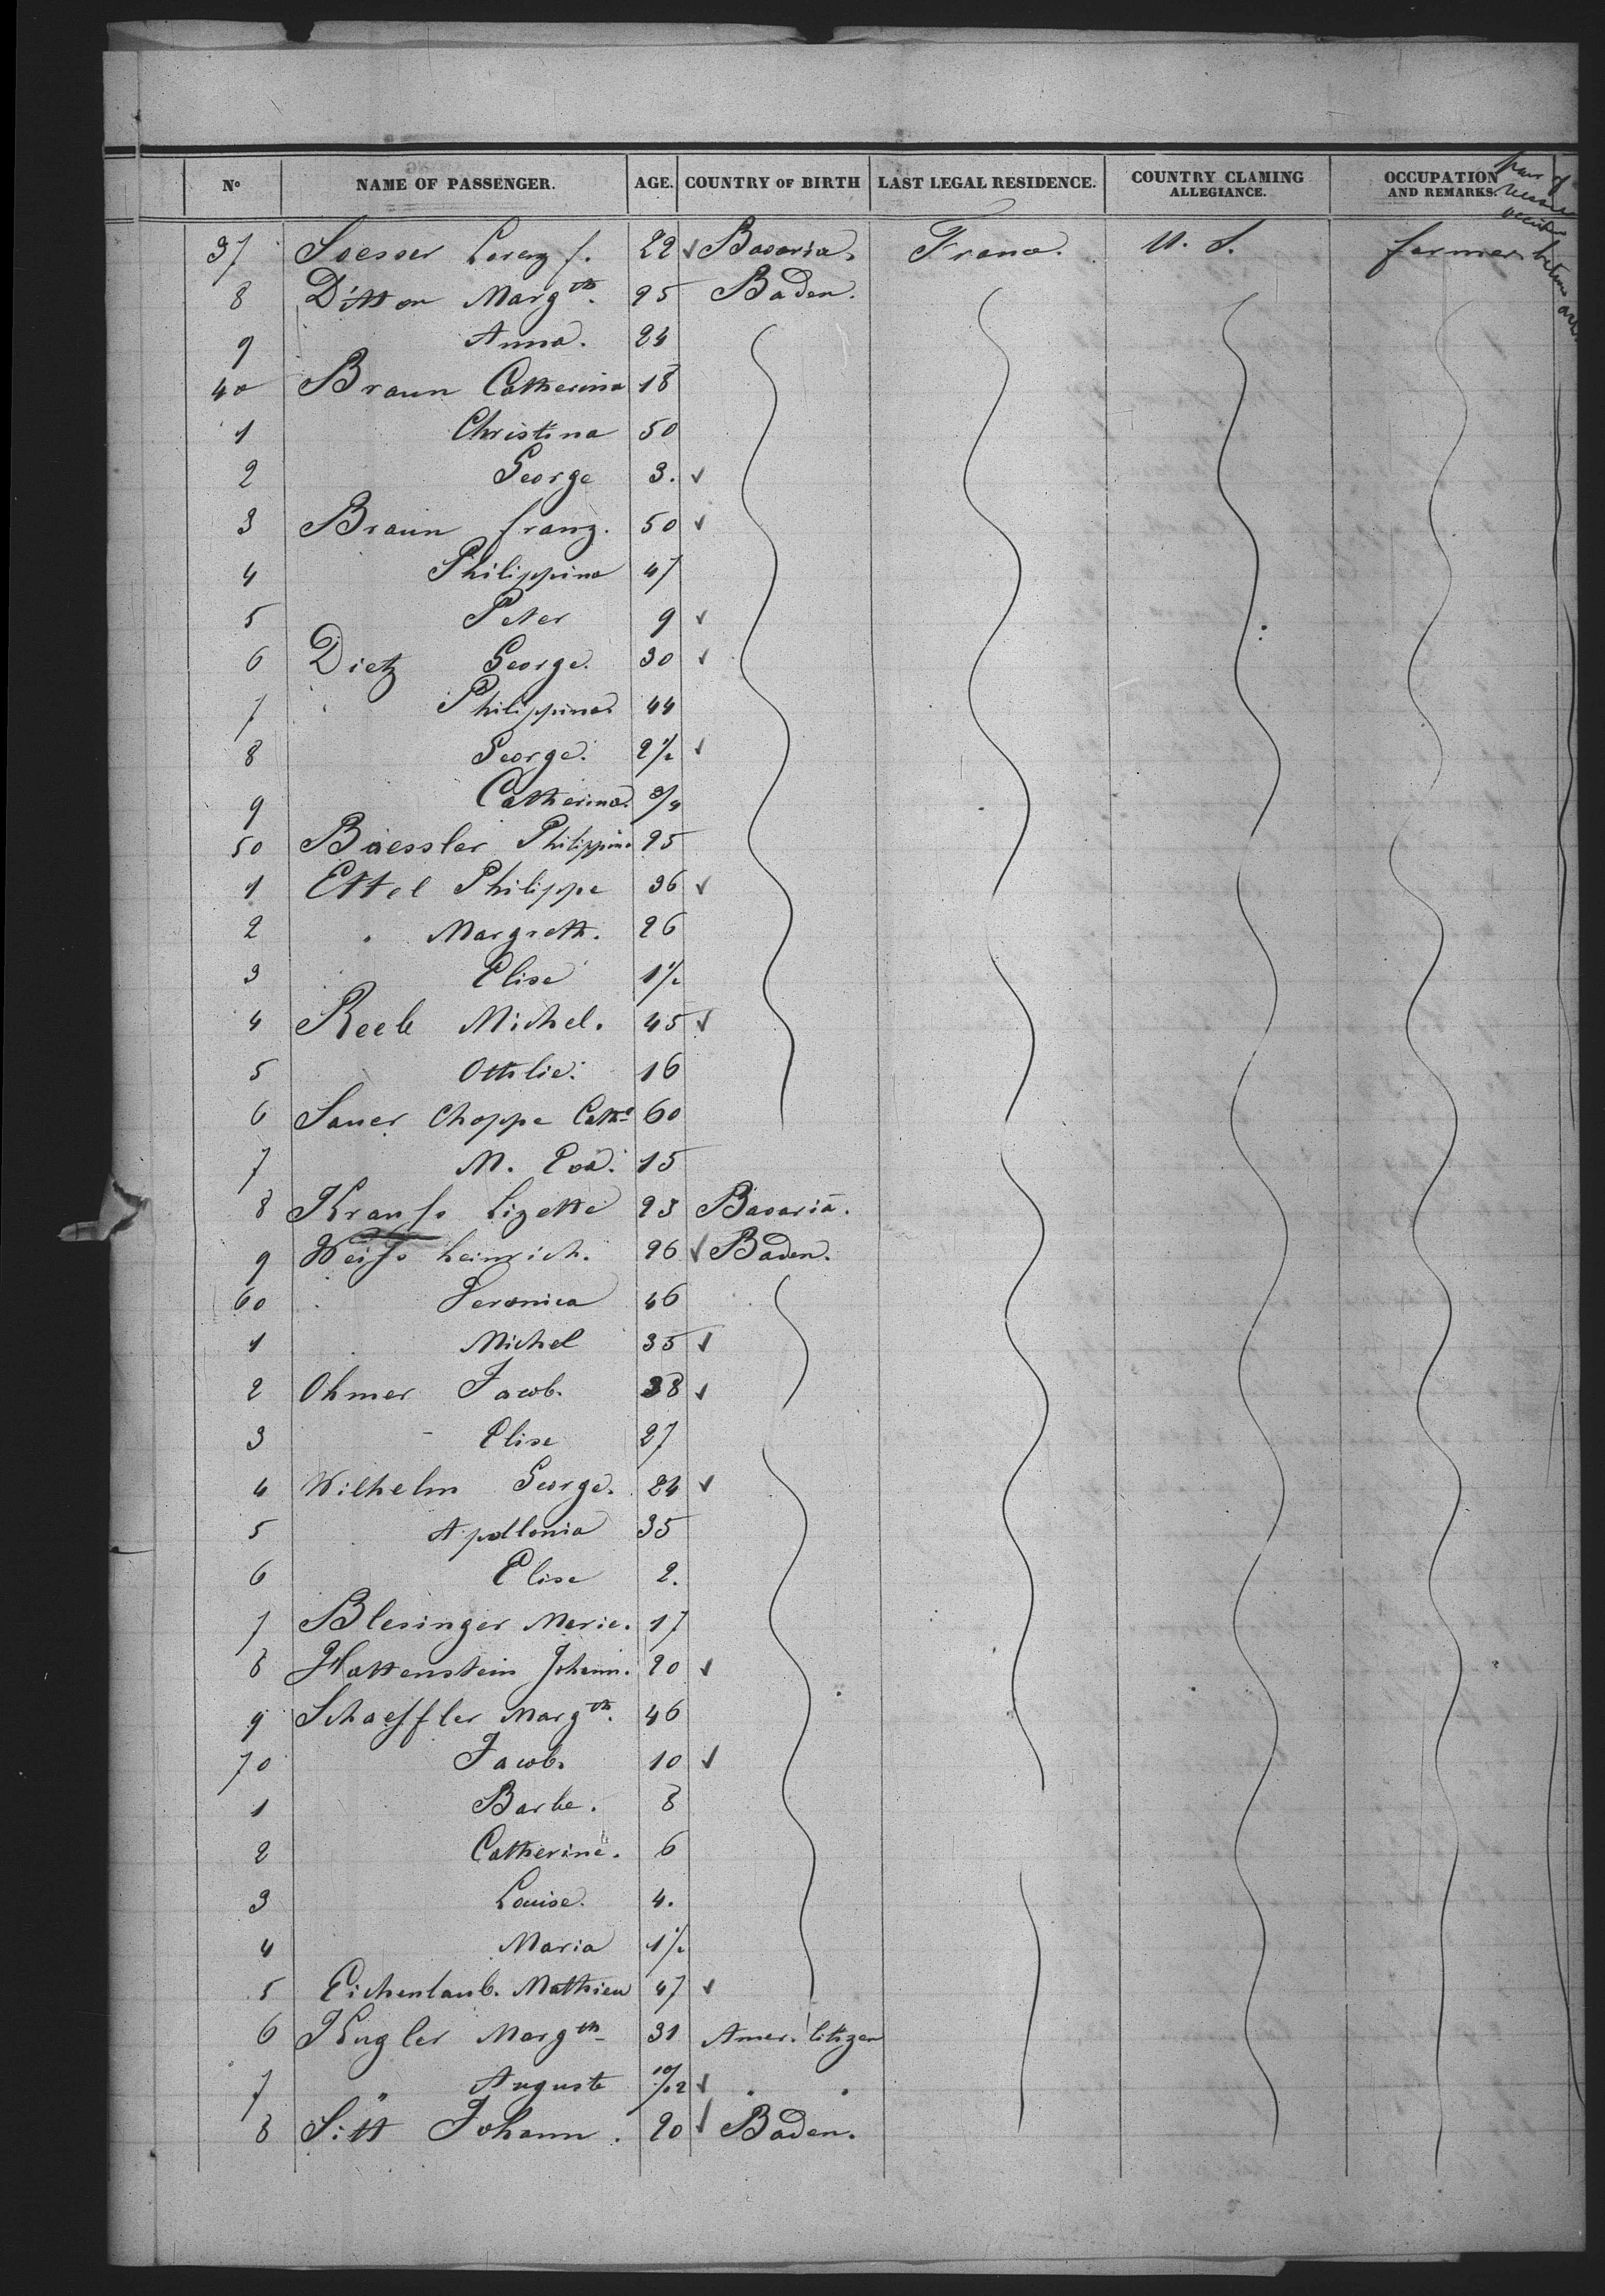 No NAME OF PASSENGER. AGE. COUNTRY OF BIRTH LAST LEGAL RESIDENCE. COUNTRY CLAMING ALLEGIANCE. OCCUPATION AND REMARKS.
37 Soesser Lorenz f. 22 ✓ Bavaria. France. U. S. farmer
8 Ditton Margth. 25 Baden.
9 Anna. 24
40 Braun Catherina 18
1 Christina 50
2 George 3. ✓
3 Braun franz. 50 ✓
4 Philippina 47
5 Peter 9 ✓
6 Dietz George. 30 ✓
7 Philippina. 44
8 George. 2½ ✓
9 Catherina. 3/4
50 Baessler Philippina 25
1 Ettel Philippe 36 ✓
2 Margreth. 26
3 Elise 1½
4 Reeb Michel. 45 ✓
5 Ottilie. 16
6 Sauer Choppe Cath. 60
7 M. Eva. 15
8 Krauss Lizette 23 Bavaria.
9 Weiss heinrich. 26 ✓ Baden.
60 Veronica 46
1 Michel 35 ✓
2 Ohmer Jacob. 38 ✓
3 Elise 27
4 Wilhelm George. 24 ✓
5 Apollonia 35
6 Elise 2.
7 Blesinger Marie. 17
8 Hattenstein Johann. 20 ✓
9 Schaeffler Margth. 46
70 Jacob. 10 ✓
1 Barbe. 8
2 Catherine. 6
3 Louise. 4.
4 Maria 1½
5 Eichenlaub. Mathieu 47 ✓
6 Kugler Margth 31 Amer. Citizen
7 " Auguste 10/12 ✓ . .
8 Sitt Johann. 20 ✓ Baden.